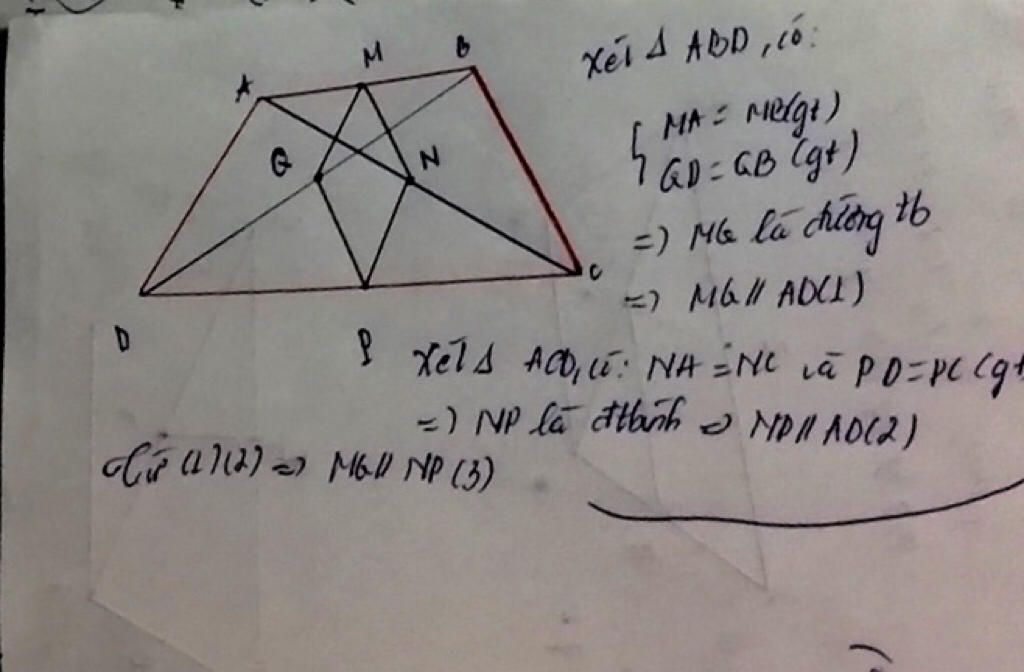 A M B
Q N
C
D P
Xét Δ ABD, có:
MA = MB(gt)
QD = QB (gt)
=) MQ là đường tb
=) MQ // AD(1)
Xét Δ ACD, có: NA = NC và PD = PC (gt
=) NP là đtbình => NP // AD(2)
Từ (1)(2) => MQ // NP (3)